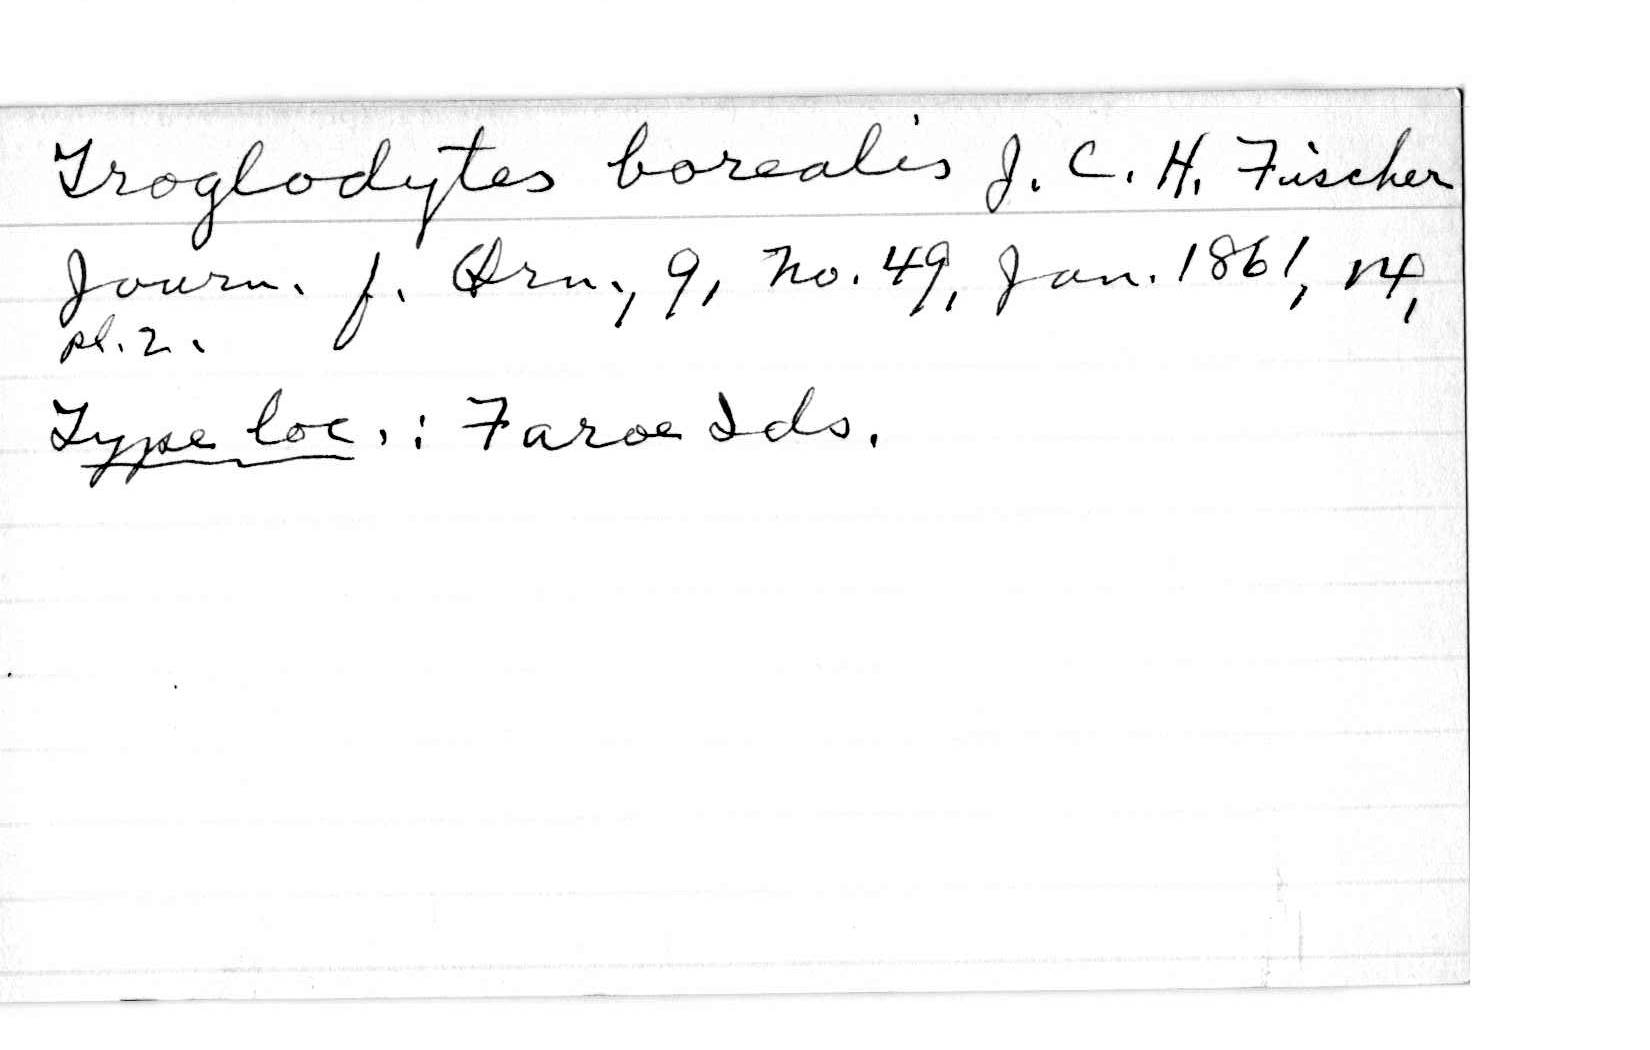 Troglodytes borealis J. C. H. Fischer
Journ. f. Orn., 9, no. 49, Jan. 1861, 14,
pl. 2.
Type loc.: Faroe Ids.